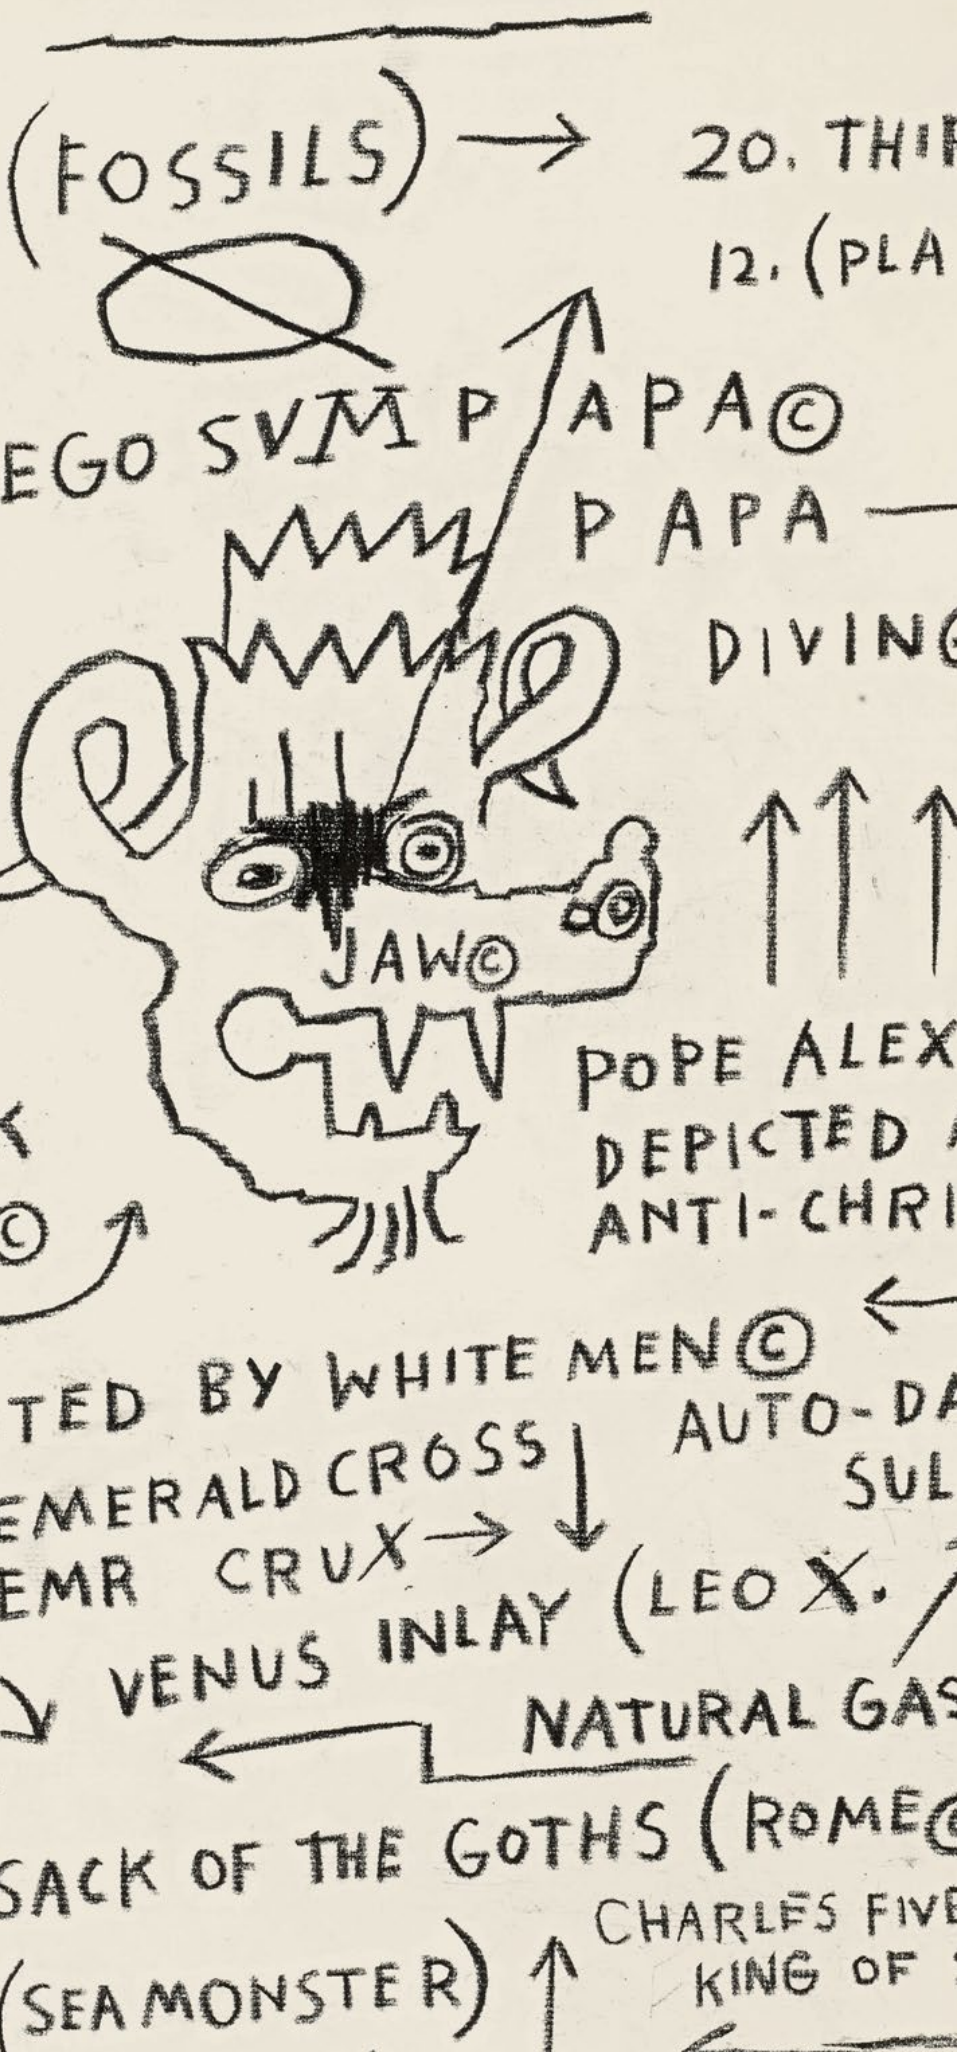 (FOSSILS) → 20. THIR
12. (PLA
EGO SVM P APA©
PAPA —
DIVING
JAW©
POPE ALEX
DEPICTED A
ANTI-CHRI
K
©
←
TED BY WHITE MEN©
AUTO-DA
EMERALD CROSS
SUL
EMR CRUX →
VENUS INLAY (LEO X.
NATURAL GAS
SACK OF THE GOTHS (ROME©
CHARLES FIVE
(SEA MONSTER)
KING OF